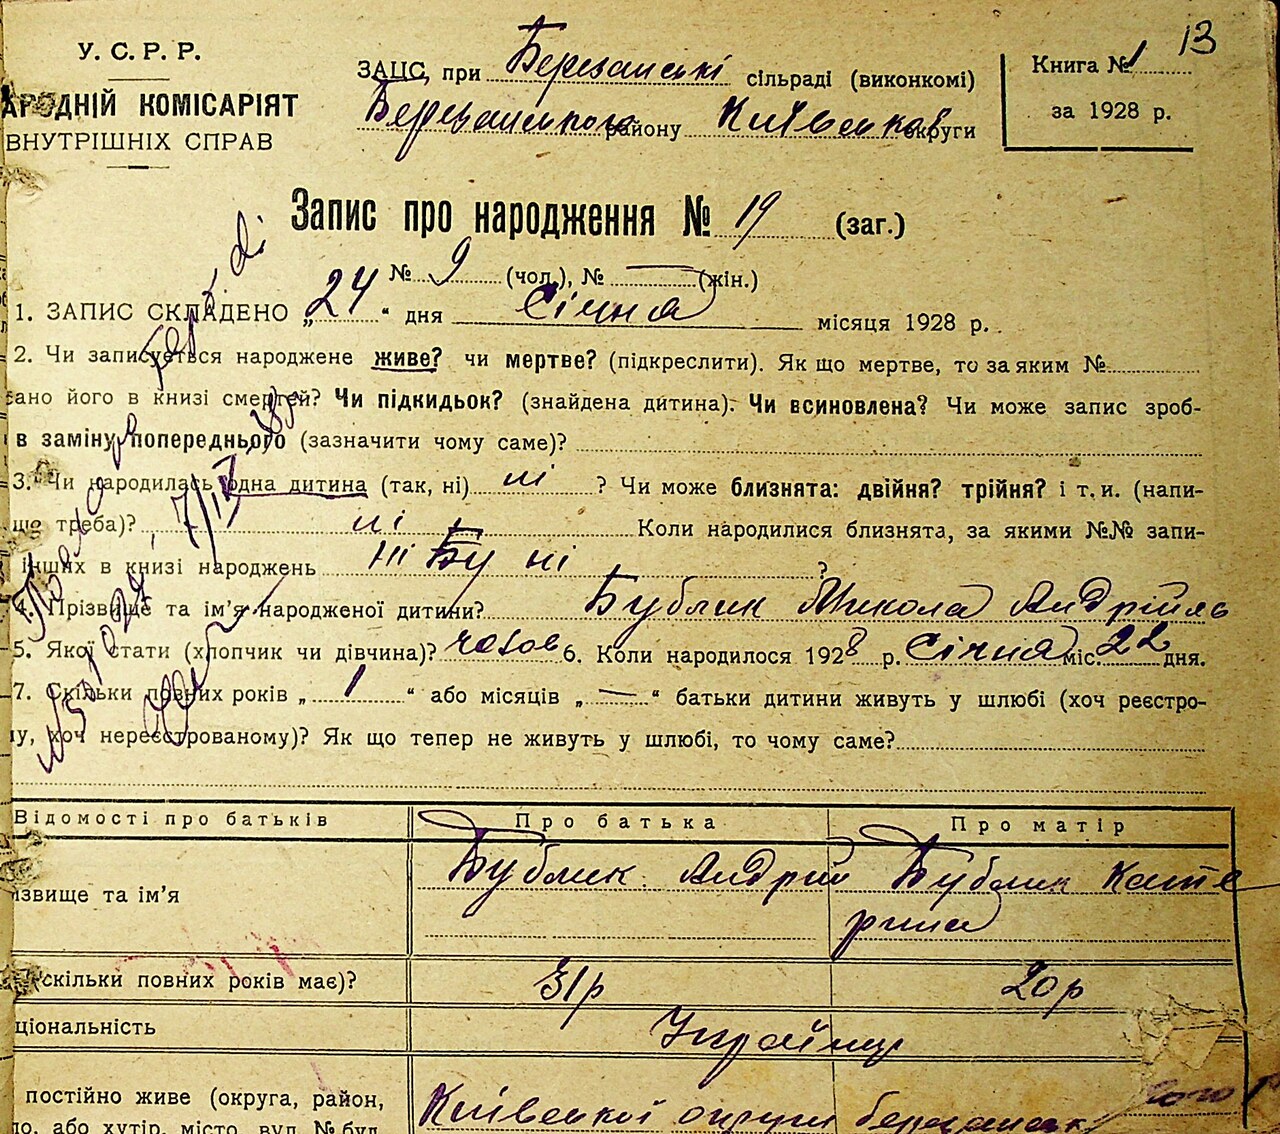 13
У. С. Р. Р.
АРОДНІЙ КОМІСАРІЯТ
ВНУТРІШНІХ СПРАВ
ЗАЦС, при Березанські сільраді (виконкомі)
району Київської округи
Книга № 1
за 1928 р.
Запис про народження № 19 (заг.)
№ 9 (чол.), № — (жін.)
1. ЗАПИС СКЛАДЕНО „24“ дня Січня місяця 1928 р.
2. Чи записується народжене живе? чи мертве? (підкреслити). Як що мертве, то за яким №
ано його в книзі смертей? Чи підкидьок? (знайдена дитина). Чи всиновлена? Чи може запис зроб-
в заміну попереднього (зазначити чому саме)?
3. Чи народилась одна дитина (так, ні) ні ? Чи може близнята: двійня? трійня? і т. и. (напи-
що треба)? ні Коли народилися близнята, за якими №№ запи-
інших в книзі народжень ?
4. Прізвище та ім'я народженої дитини? Бублик Микола
5. Якої стати (хлопчик чи дівчина)? 6. Коли народилося 1928 р. Січня міс. 22 дня.
7. Скільки повних років „ 1 “ або місяців „ — “ батьки дитини живуть у шлюбі (хоч реєстро-
у, хоч нереєстрованому)? Як що тепер не живуть у шлюбі, то чому саме?
7/IV
Відомості про батьків Про батька Про матір
ізвище та ім'я Бублик Андрій Бублик Кате
рина
скільки повних років має)? 31р 20р
ціональність
постійно живе (округа, район, Київської округи
о, або хутір, місто, вул. № буд.